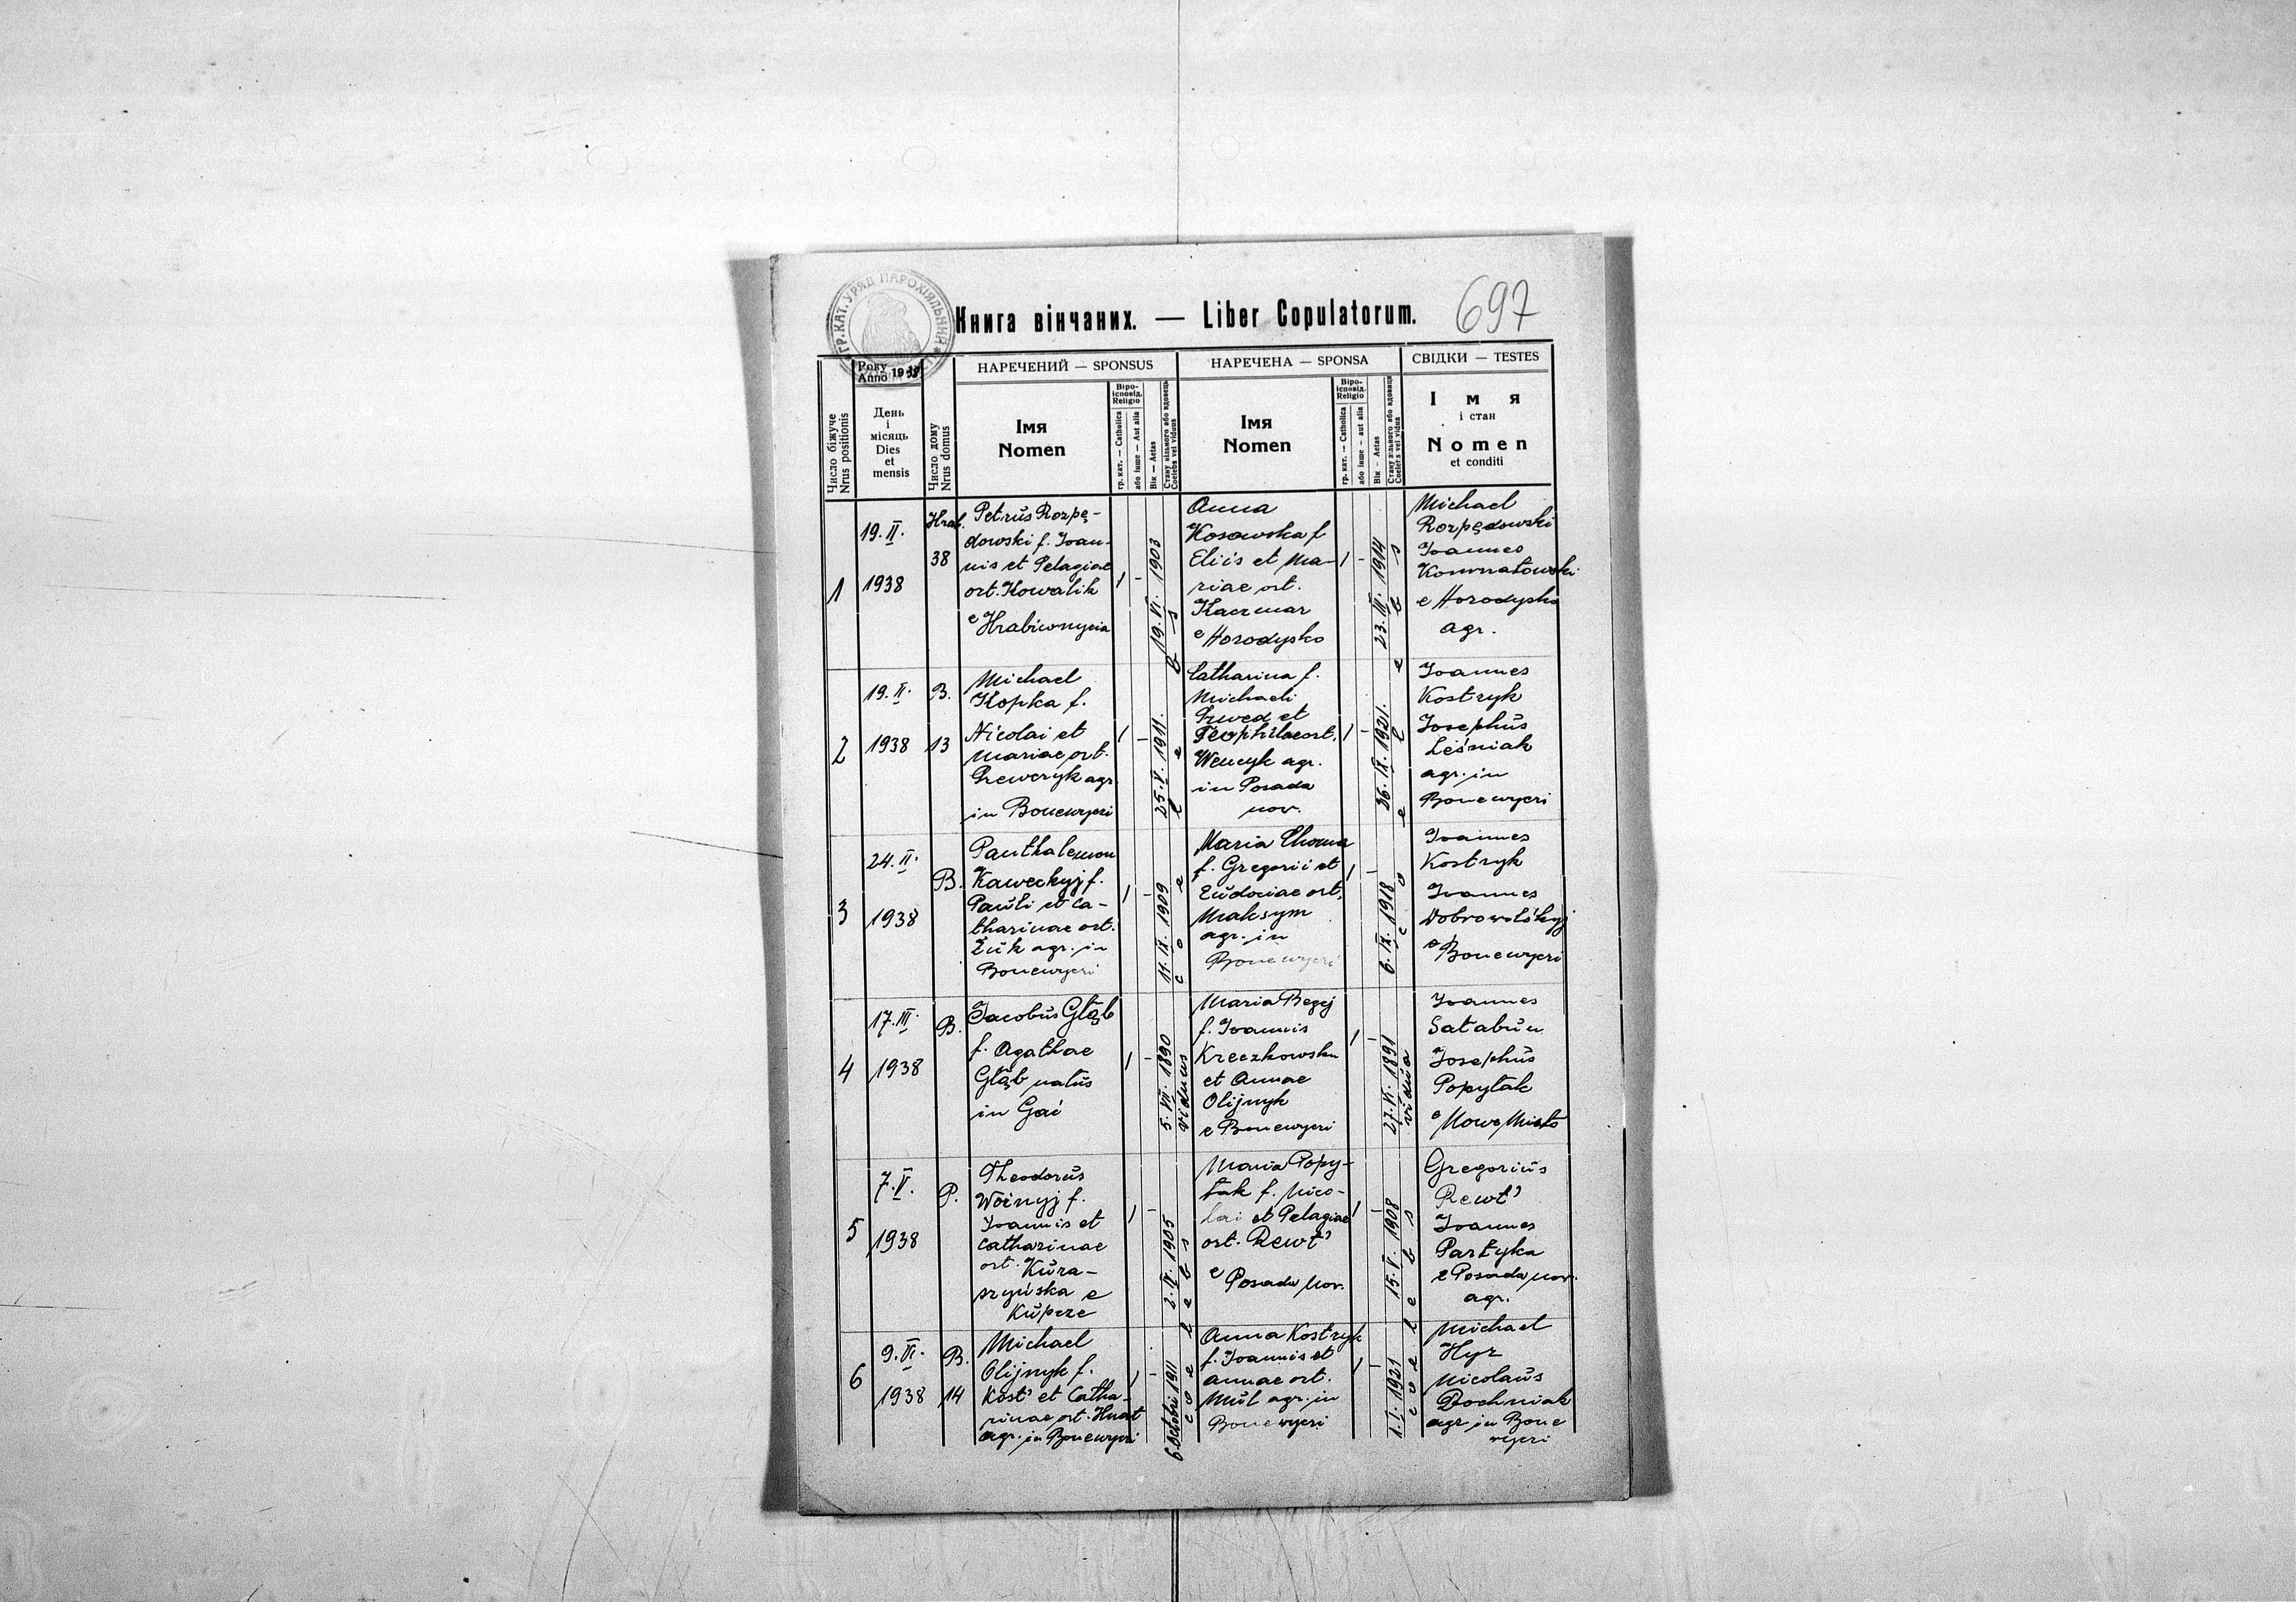 ГР.КАТ. УРЯД ПАРОХІЯЛЬНИЙ
Книга вінчаних. — Liber Copulatorum.
697
Року
Anno 1938
НАРЕЧЕНИЙ — SPONSUS
НАРЕЧЕНА — SPONSA
СВІДКИ — TESTES
Число біжуче
Nrus positionis
День
і
місяць
Dies
et
mensis
Число дому
Nrus domus
Імя
Nomen
Віро-
ісповід.
Religio
гр. кат. — Catholica
або інше — Aut alia
Вік — Aetas
Стану вільного або вдовець
Coelebs vel viduus
Імя
Nomen
Віро-
ісповід.
Religio
гр. кат. — Catholica
або інше — aut alia
Вік — Aetas
Стану вільного або вдовиця
Coelebs vel vidua
Імя
і стан
Nomen
et conditi
1
19. II.
1938
Hrab.
38
Petrus Rozpę-
dowski f. Joan-
nis et Pelagiae
ort. Kowalik
e Hrabiwnycia
1
-
19. VI. 1903
Anna
Kosowska f
Eliis et Ma-
riae ort.
Kaczmar
e Horodysko
1
-
23. III. 1914
Michael
Rozpędowski
Joannes
Kommatowski
e Horodysko
agr.
2
19. II.
1938
B.
13
Michael
Kopka f.
Nicolai et
Mariae ort.
agr.
in Bonewyczi
1
-
25. V. 1911.
Catharina f.
Michaeli
et
Teophilae ort.
Wencyk agr.
in Posada
nov.
1
-
26. IX. 1921.
Joannes
Kostryk
Josephus
Leśniak
agr. in
Bonewyczi
3
24. II.
1938
B.
Panthalemon
Kaweckyj f.
Pauli et Ca-
tharinae ort.
Żuk agr. in
Bonewyczi
1
-
11. IX. 1909
Maria Choma
f. Gregorii et
Eudociae ort.
Maksym
agr. in
Bonewyczi
1
-
6. IX. 1918
Joannes
Kostryk
Joannes
Dobrowolśkyj
e Bonewyczi
4
17. III.
1938
B.
Jacobus Głąb
f. Agathae
Głąb natus
in Gai
1
-
5. VII. 1890
viduus
Maria Begej
f. Joannis
Kreczkowsku
et Annae
Olijnyk
e Bonewyczi
1
-
27. VI. 1891
vidua
Joannes
Satabun
Josephus
Popytak
e Nowe Miasto
5
7. V.
1938
P.
Theodorus
Woinyj f.
Joannis et
Catharinae
ort. Kura-
szyńska e
Kupcze
1
-
2. IV. 1905
coelebs
Maria Popy-
tak f. Nico-
lai et Pelagiae
ort. Rewt'
e Posada Nov.
1
-
15. V. 1908
coelebs
Gregorius
Rewt'
Joannes
Partyka
e Posada nov.
agr.
6
9. VI.
1938
B.
14
Michael
Olijnyk f.
Kost' et Catha-
rinae ort. Hnat
agr. in Bonewyczi
1
-
6. Octobri 1911
Anna Kostryk
f. Joannis et
Annae ort.
Mul agr. in
Bonewyczi
1
-
1. I. 1921
Michael
Hyr
Nicolaus
Dochniak
agr in Bone
wyczi